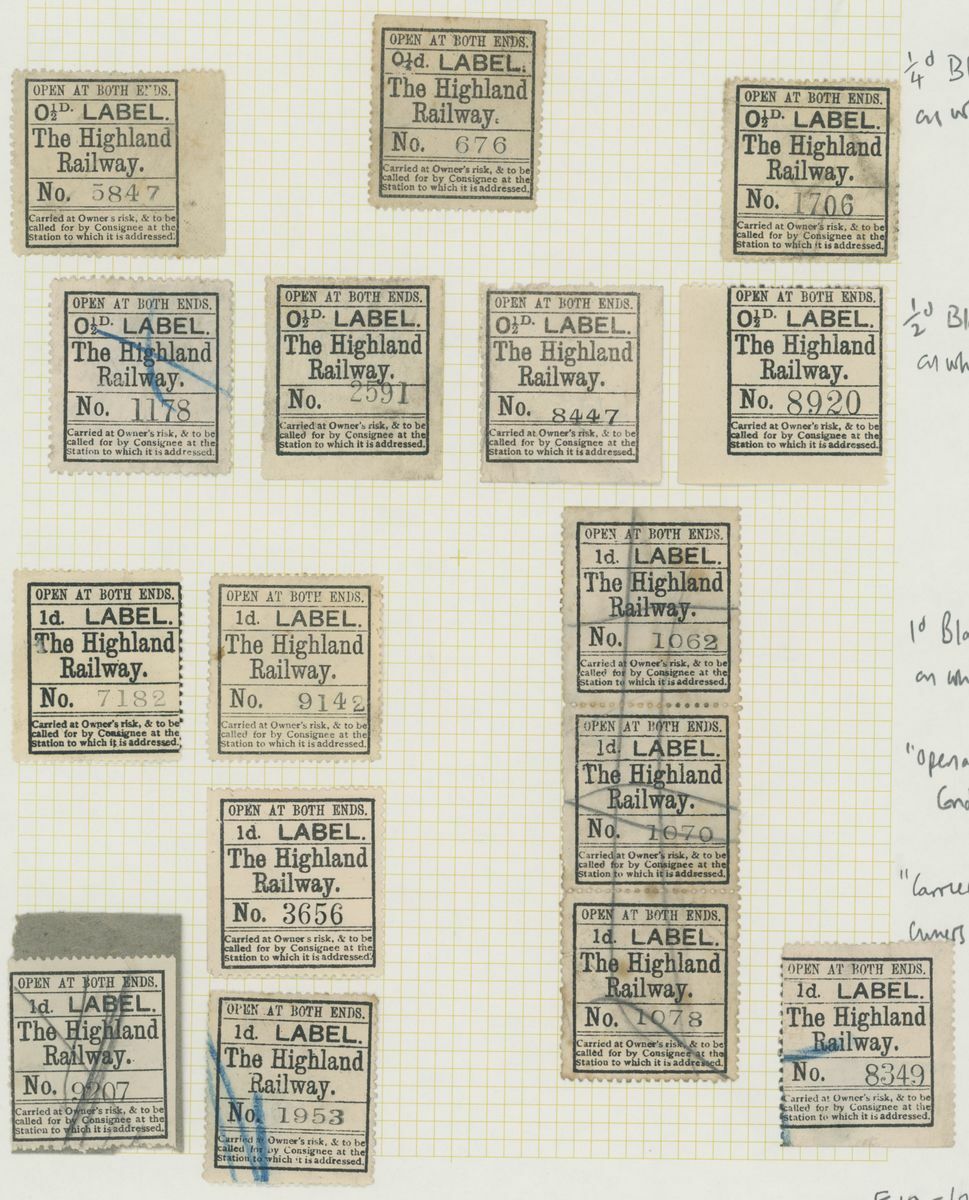 OPEN AT BOTH ENDS.
0½D. LABEL.
The Highland
Railway.
No. 5847
Carried at Owner's risk, & to be
called for by Consignee at the
Station to which it is addressed.
OPEN AT BOTH ENDS.
0¼d. LABEL.
The Highland
Railway.
No. 676
Carried at Owner's risk, & to be
called for by Consignee at the
Station to which it is addressed.
OPEN AT BOTH ENDS.
0½D. LABEL.
The Highland
Railway.
No. 1706
Carried at Owner's risk, & to be
called for by Consignee at the
Station to which it is addressed.
¼d Bl
on wh
OPEN AT BOTH ENDS.
0½D. LABEL.
The Highland
Railway.
No. 1178
Carried at Owner's risk, & to be
called for by Consignee at the
Station to which it is addressed.
OPEN AT BOTH ENDS.
0½D. LABEL.
The Highland
Railway.
No. 2591
Carried at Owner's risk, & to be
called for by Consignee at the
Station to which it is addressed.
OPEN AT BOTH ENDS.
0½D. LABEL.
The Highland
Railway.
No. 8447
Carried at Owner's risk, & to be
called for by Consignee at the
Station to which it is addressed.
OPEN AT BOTH ENDS.
0½D. LABEL.
The Highland
Railway.
No. 8920
Carried at Owner's risk, & to be
called for by Consignee at the
Station to which it is addressed.
½d Bl
on wh
OPEN AT BOTH ENDS.
1d. LABEL.
The Highland
Railway.
No. 7182
Carried at Owner's risk, & to be
called for by Consignee at the
Station to which it is addressed.
OPEN AT BOTH ENDS.
1d. LABEL.
The Highland
Railway.
No. 9142
Carried at Owner's risk, & to be
called for by Consignee at the
Station to which it is addressed.
OPEN AT BOTH ENDS.
1d. LABEL.
The Highland
Railway.
No. 1062
Carried at Owner's risk, & to be
called for by Consignee at the
Station to which it is addressed.
OPEN AT BOTH ENDS.
1d. LABEL.
The Highland
Railway.
No. 1070
Carried at Owner's risk, & to be
called for by Consignee at the
Station to which it is addressed.
OPEN AT BOTH ENDS.
1d. LABEL.
The Highland
Railway.
No. 1078
Carried at Owner's risk, & to be
called for by Consignee at the
Station to which it is addressed.
1d Bla
on wh
"Open a
"Carrie
Owners
OPEN AT BOTH ENDS.
1d. LABEL.
The Highland
Railway.
No. 3656
Carried at Owner's risk, & to be
called for by Consignee at the
Station to which it is addressed.
OPEN AT BOTH ENDS.
1d. LABEL.
The Highland
Railway.
No. 9207
Carried at Owner's risk, & to be
called for by Consignee at the
Station to which it is addressed.
OPEN AT BOTH ENDS.
1d. LABEL.
The Highland
Railway.
No. 1953
Carried at Owner's risk, & to be
called for by Consignee at the
Station to which it is addressed.
OPEN AT BOTH ENDS.
1d. LABEL.
The Highland
Railway.
No. 8349
Carried at Owner's risk, & to be
called for by Consignee at the
Station to which it is addressed.